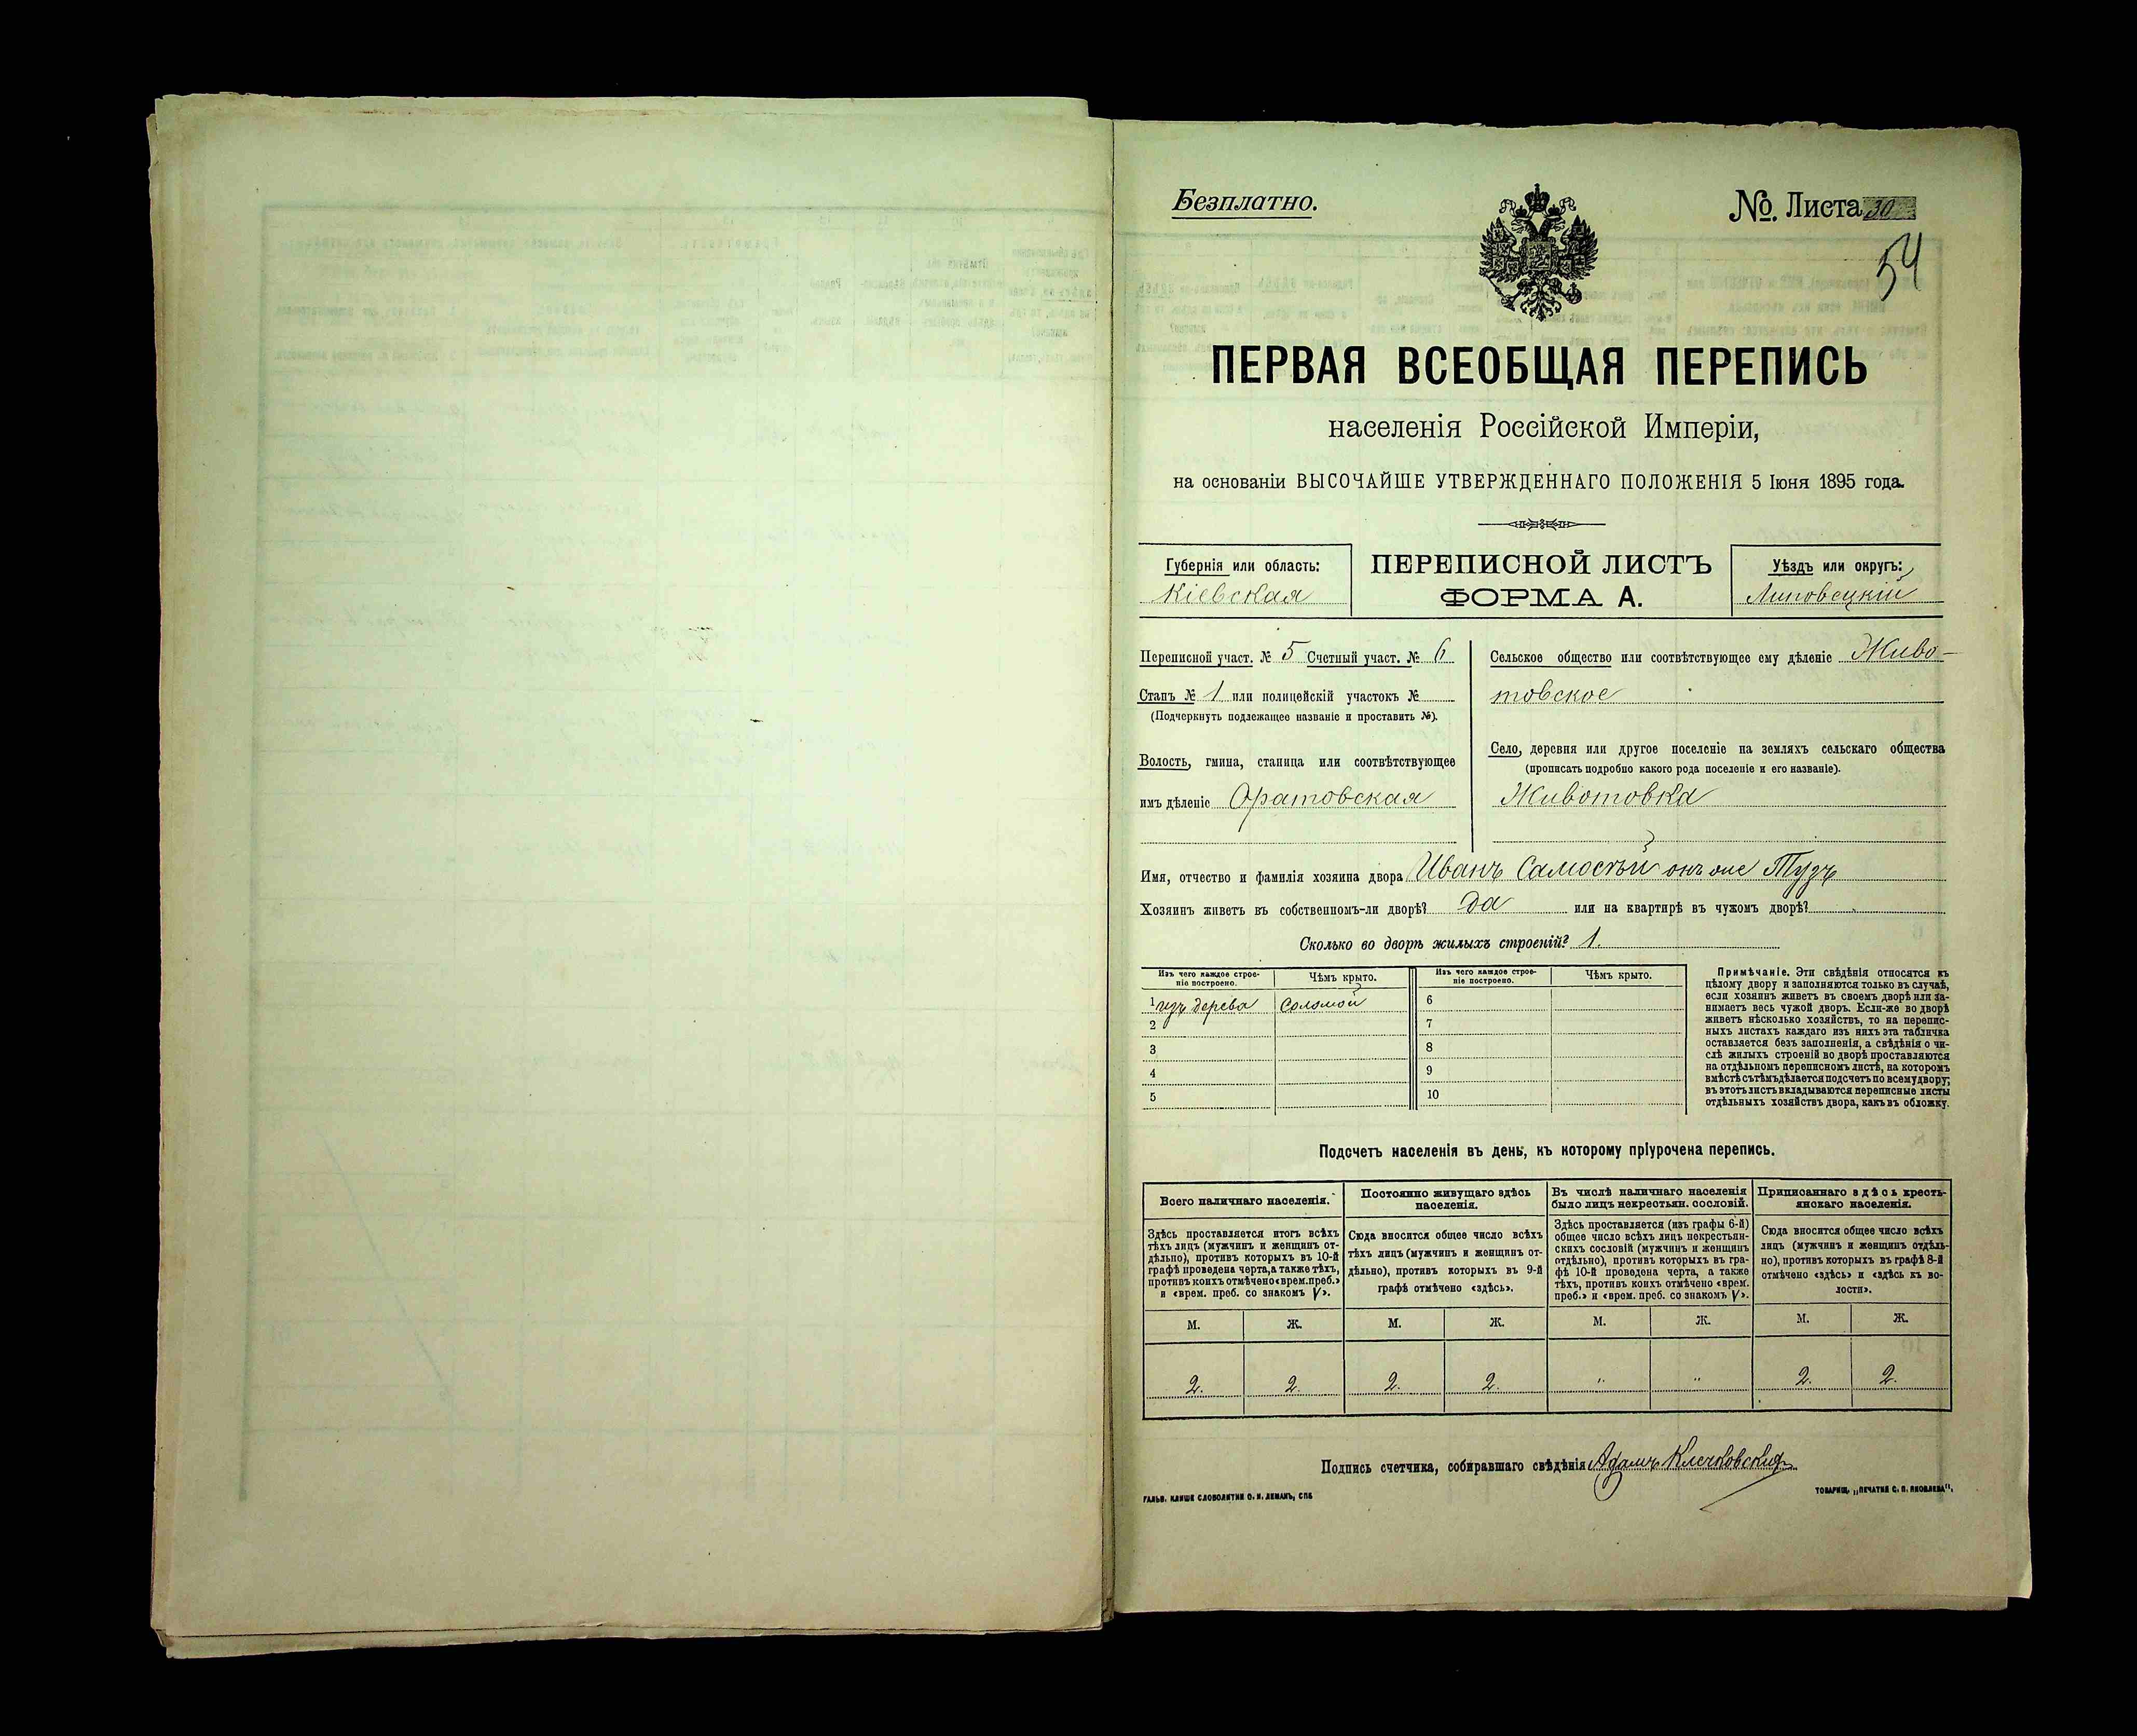 Безплатно.
№. Листа 30
54
ПЕРВАЯ ВСЕОБЩАЯ ПЕРЕПИСЬ
населенія Россійской Имперіи,
на основаніи ВЫСОЧАЙШЕ УТВЕРЖДЕННАГО ПОЛОЖЕНІЯ 5 Іюня 1895 года.
Губернія или область:
Кіевская
ПЕРЕПИСНОЙ ЛИСТЪ
ФОРМА А.
Уѣздъ или округъ:
Липовецкій
Переписной участ. № 5 Счетный участ. № 6
Станъ № 1 или полицейскій участокъ №
(Подчеркнуть подлежащее названіе и проставить №).
Волость, гмина, станица или соотвѣтствующее
имъ дѣленіе Оратовская
Сельское общество или соотвѣтствующее ему дѣленіе Живо-
товское
Село, деревня или другое поселеніе на земляхъ сельскаго общества
(прописать подробно какого рода поселеніе и его названіе).
Животовка
Имя, отчество и фамилія хозяина двора Иванъ Самосѣй онъ же Тузъ
Хозяинъ живетъ въ собственномъ-ли дворѣ? да или на квартирѣ въ чужомъ дворѣ?
Сколько во дворѣ жилыхъ строеній? 1.
Изъ чего каждое строе-
ніе построено.
Чѣмъ крыто.
1 изъ дерева соломой
2
3
4
5
Изъ чего каждое строе-
ніе построено.
Чѣмъ крыто.
6
7
8
9
10
Примѣчаніе. Эти свѣдѣнія относятся къ
цѣлому двору и заполняются только въ случаѣ,
если хозяинъ живетъ въ своемъ дворѣ или за-
нимаетъ весь чужой дворъ. Если-же во дворѣ
живетъ нѣсколько хозяйствъ, то на перепис-
ныхъ листахъ каждаго изъ нихъ эта табличка
оставляется безъ заполненія, а свѣдѣнія о чи-
слѣ жилыхъ строеній во дворѣ проставляются
на отдѣльномъ переписномъ листѣ, на которомъ
вмѣстѣ съ тѣмъ дѣлается подсчетъ по всему двору;
въ этотъ листъ вкладываются переписные листы
отдѣльныхъ хозяйствъ двора, какъ въ обложку.
Подсчетъ населенія въ день, къ которому пріурочена перепись.
Всего наличнаго населенія.
Здѣсь проставляется итогъ всѣхъ
тѣхъ лицъ (мужчинъ и женщинъ от-
дѣльно), противъ которыхъ въ 10-й
графѣ проведена черта, а также тѣхъ,
противъ коихъ отмѣчено «врем. преб.»
и «врем. преб. со знакомъ V».
Постоянно живущаго здѣсь
населенія.
Сюда вносится общее число всѣхъ
тѣхъ лицъ (мужчинъ и женщинъ от-
дѣльно), противъ которыхъ въ 9-й
графѣ отмѣчено «здѣсь».
Въ числѣ наличнаго населенія
было лицъ некрестьян. сословій.
Здѣсь проставляется (изъ графы 6-й)
общее число всѣхъ лицъ некрестьян-
скихъ сословій (мужчинъ и женщинъ
отдѣльно), противъ которыхъ въ гра-
фѣ 10-й проведена черта, а также
тѣхъ, противъ коихъ отмѣчено «врем.
преб.» и «врем. преб. со знакомъ V».
Приписаннаго здѣсь кресть-
янскаго населенія.
Сюда вносится общее число всѣхъ
лицъ (мужчинъ и женщинъ отдѣль-
но), противъ которыхъ въ графѣ 8-й
отмѣчено «здѣсь» и «здѣсь къ во-
лости».
М. Ж. М. Ж. М. Ж. М. Ж.
2. 2. 2. 2. " " 2. 2.
Подпись счетчика, собиравшаго свѣдѣнія Адамъ Клечковскій
ГАЛЬВ. КЛИШЕ СЛОВОЛИТНИ О. И. ЛЕМАНЪ, СПБ
ТОВАРИЩ. „ПЕЧАТНЯ С. П. ЯКОВЛЕВА".